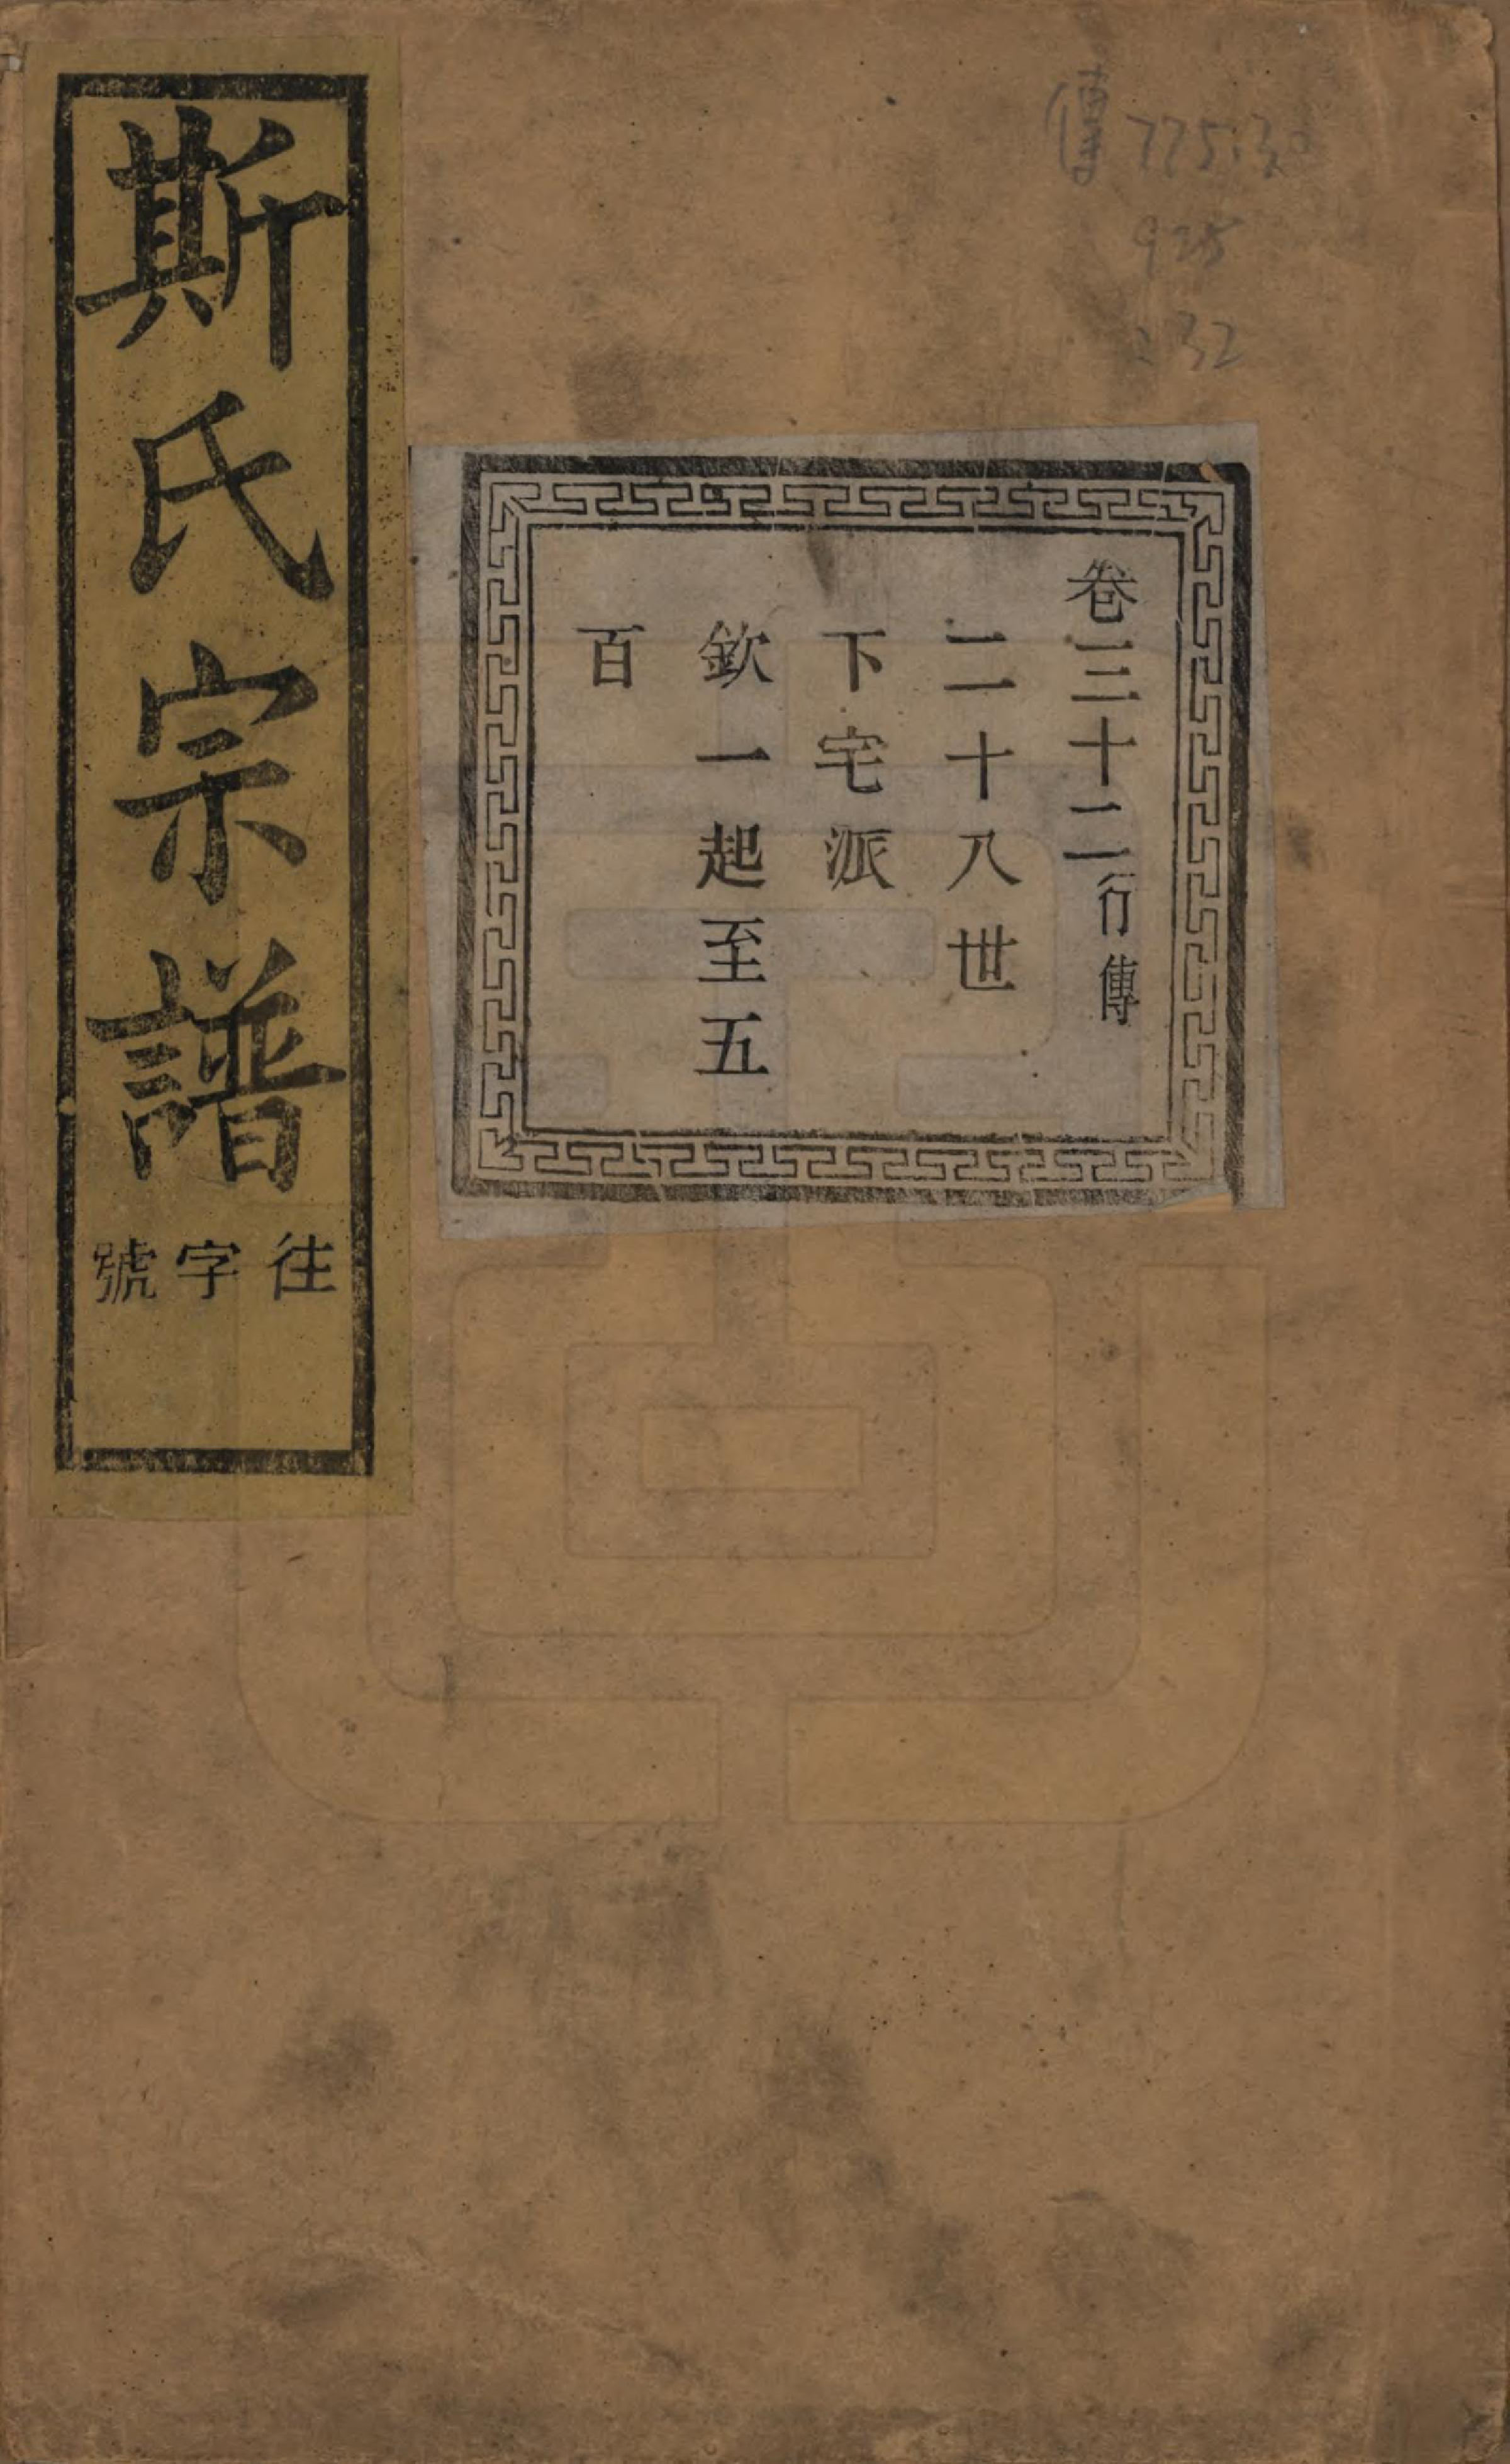 傳 775.3
925
:32
卷三十二行傳
二十八世
下宅派
欽一起至五
百
斯氏宗譜
往字號